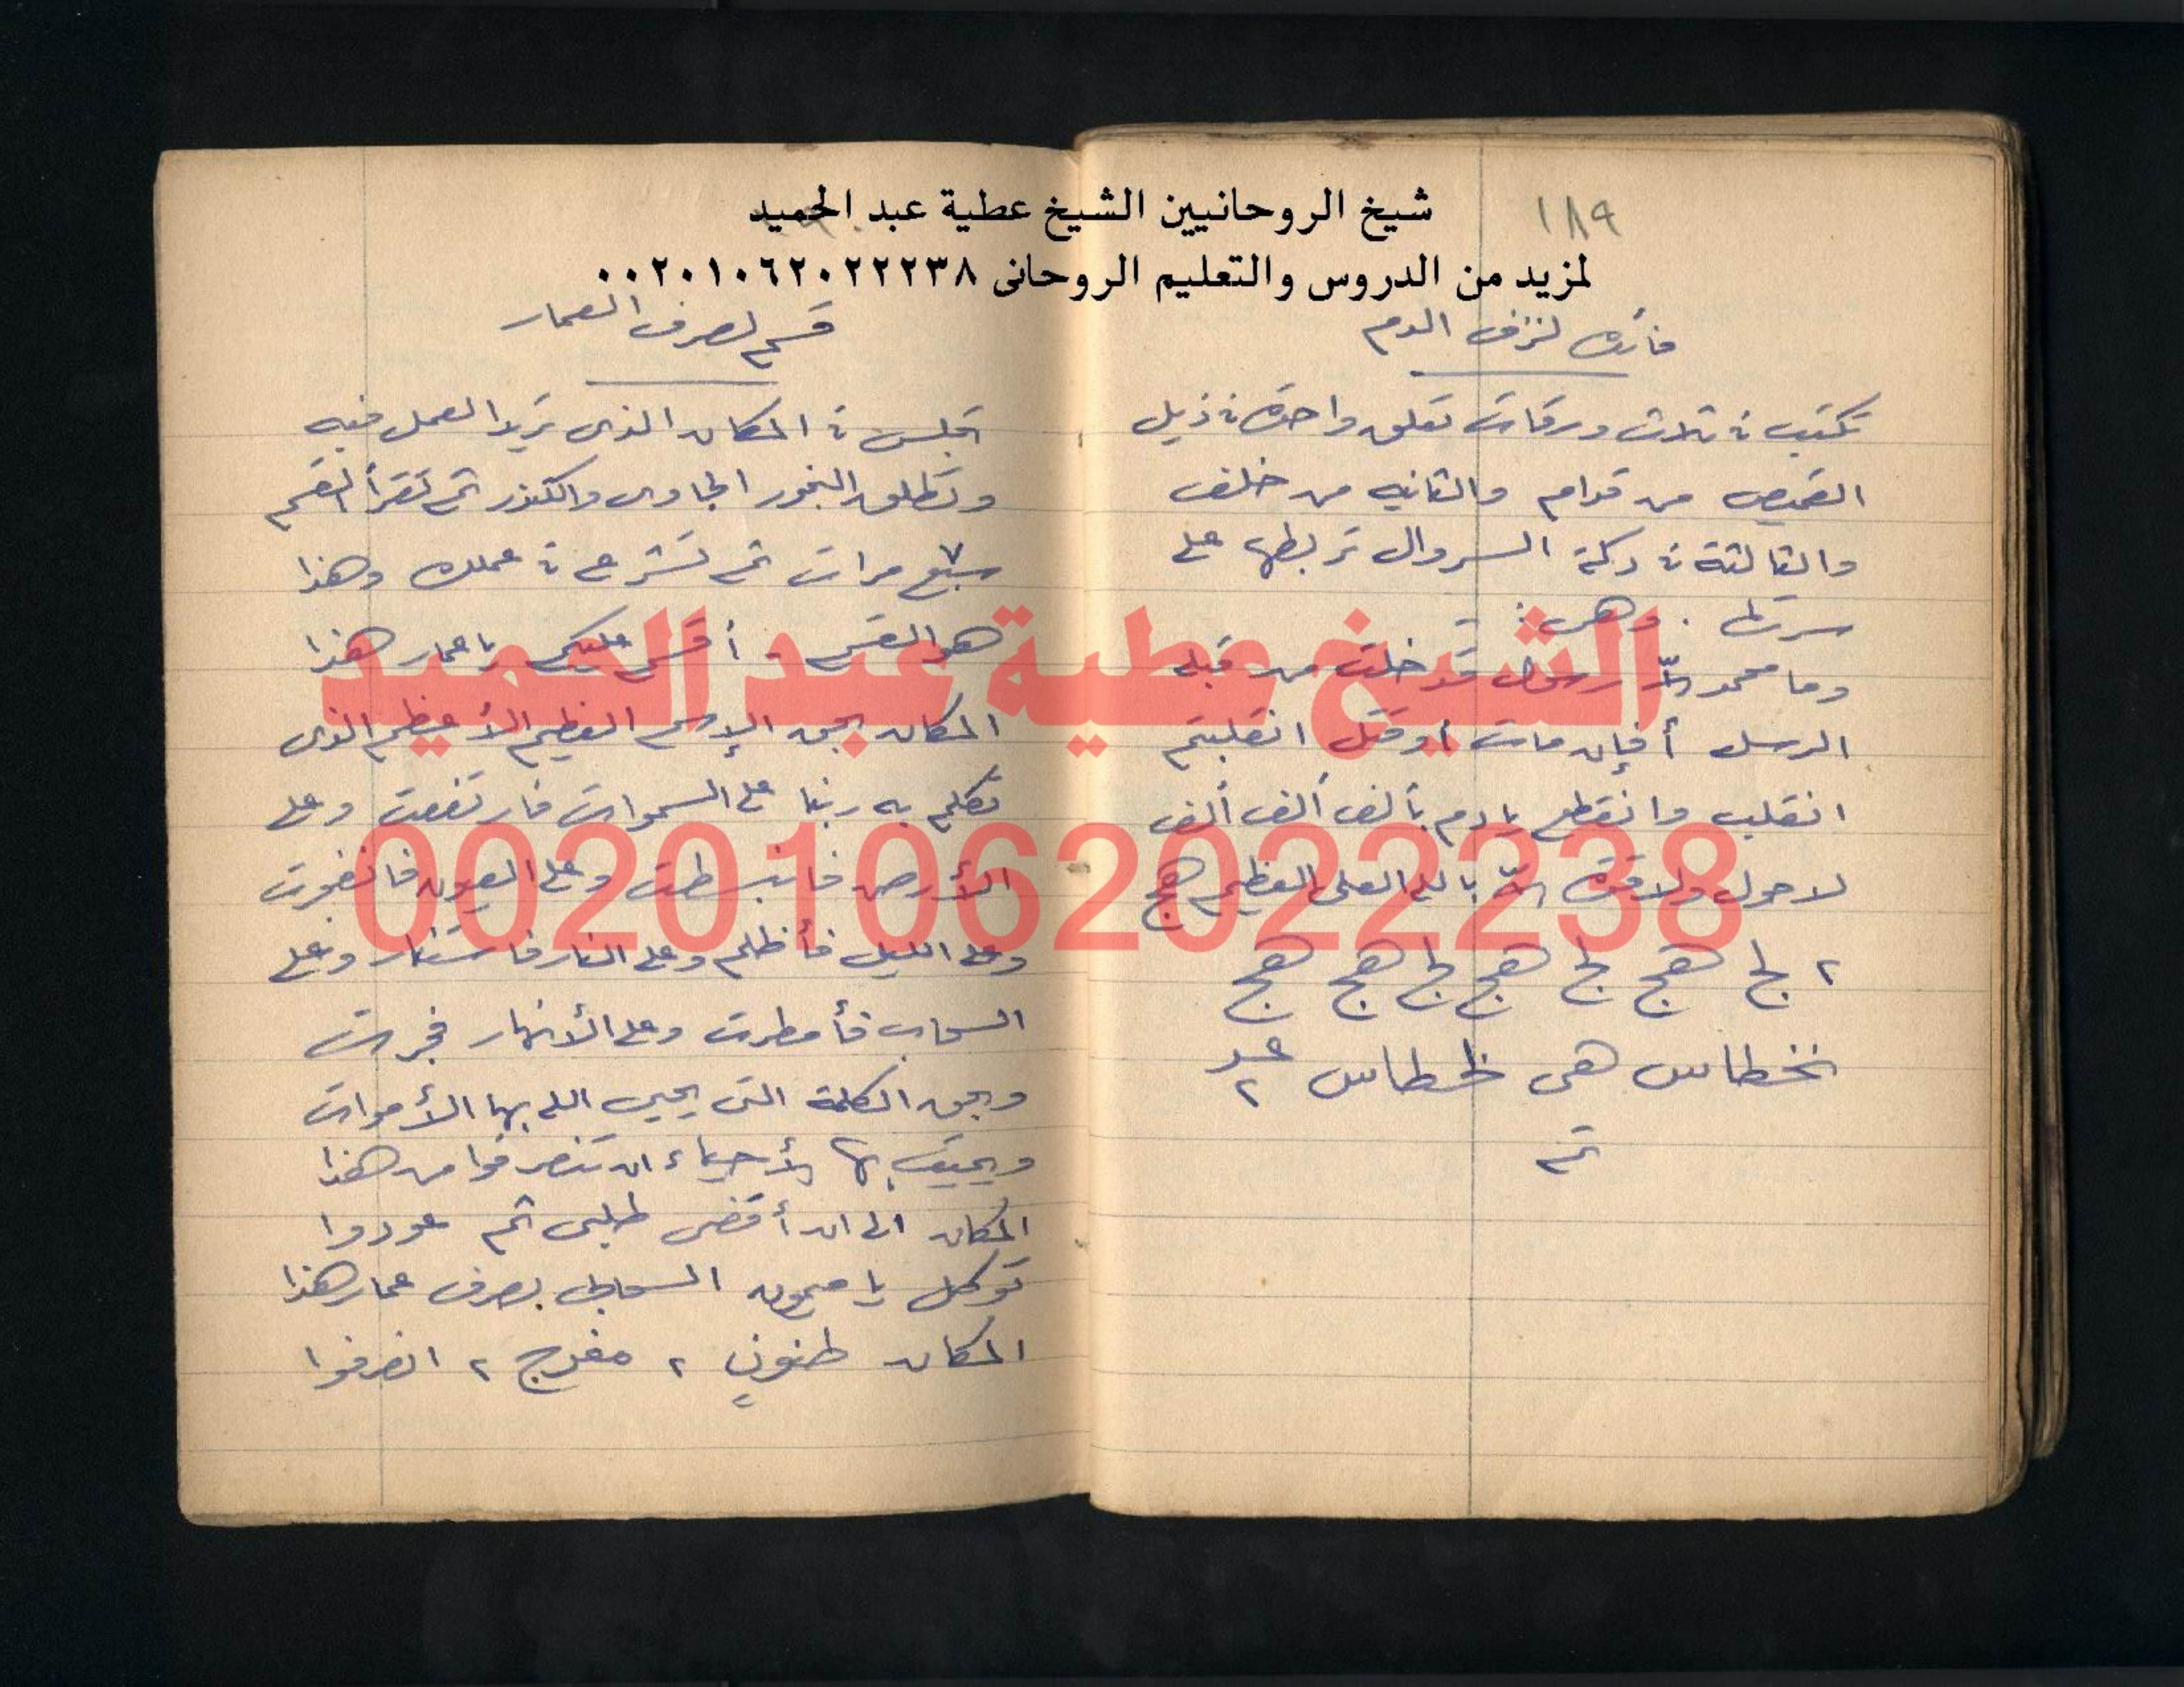 شيخ الروحانيين الشيخ عطية عبد الحميد
لمزيد من الدروس والتعليم الروحانى ٠٠٢٠١٠٦٢٠٢٢٢٣٨
١٨٩
فائده لنزف الدم
تكتب فى ثلاث ورقات تعلق واحده فى ذيل
القميص من قدام والثانيه من خلف
والثالثة فى دكة السروال تربطها على
سرتها . وهى :
وما محمد إلا رسول قد خلت من قبله
الرسل أفإن مات أو قتل انقلبتم
انقلب وانقطع يا دم بألف ألف ألف
لا حول ولا قوة إلا بالله العلى العظيم هج
٢ لج هج لج هج لج هج هج
نخطاس هى خطاس عدد ٢
تم
قسم لصرف العمار
تجلس فى المكان الذى تريد العمل فيه
وتطلق البخور الجاوى والكندر ثم تقرأ القسم
سبع ٧ مرات ثم تشرع فى عملك وهذا
هو القسم . أقسم عليكم يا عمار هذا
المكان بحق الإسم العظيم الأعظم الذى
تكلم به ربنا على السموات فارتفعت وعلى
الأرض فانبسطت وعلى العيون فانفجرت
وعلى الليل فأظلم وعلى النار فاستنار وعلى
السحاب فأمطرت وعلى الأنهار فجرت
وبحق الكلمة التى يحيى الله بها الأموات
ويميت بها الأحياء ان تنصرفوا من هذا
المكان الى ان أقضى طلبى ثم عودوا
توكل يا ميمون السحابى بصرف عمار هذا
المكان ٢ ٢ انصرفوا
الشيخ عطية عبد الحميد
00201062022238